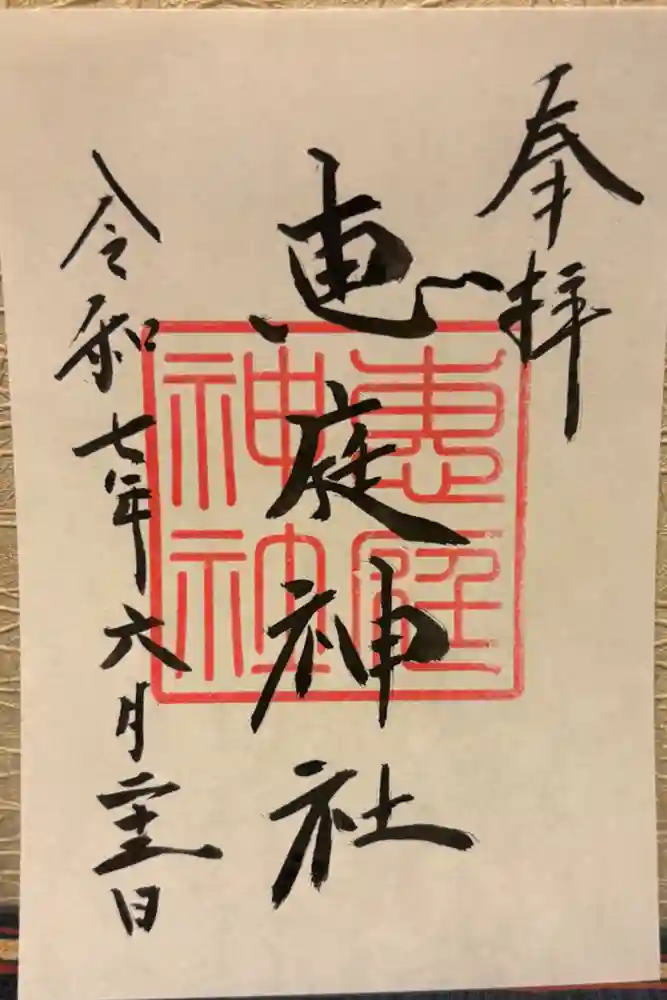 奉拝
恵庭神社
惠庭
神社
令和七年六月二十二日